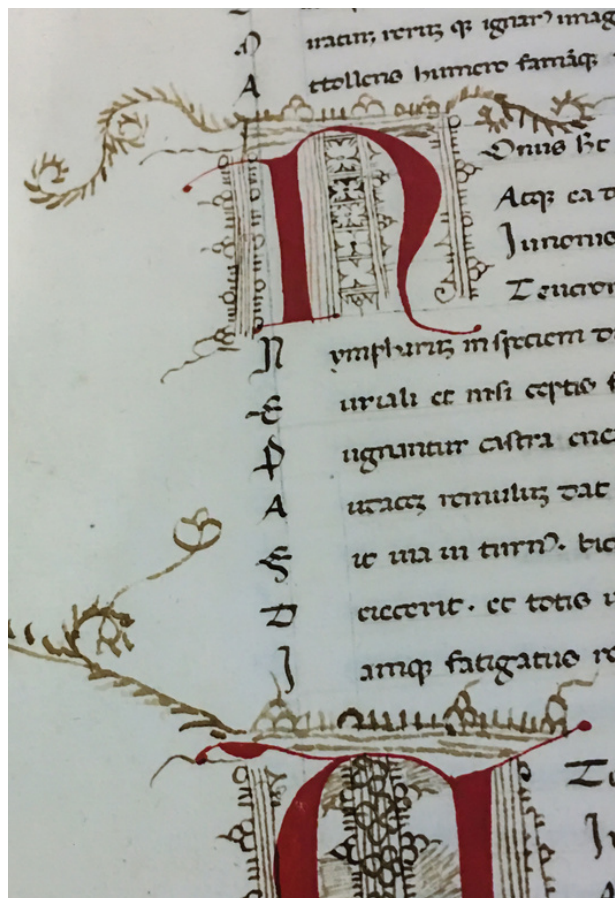 M iratur rerūq; ignar⁹ imag
A ttollens humero famāq;
N Onus hc
Atq; ea d
Junonis
Teucror
N ympharuz in speciem d
E uriali et nisi ceptis f
P ugnantur castra ene
A udacez remuluz dat
F it uia ui turn⁹. bic
D eiecerit. et totis u
J amq; fatigatus re
A